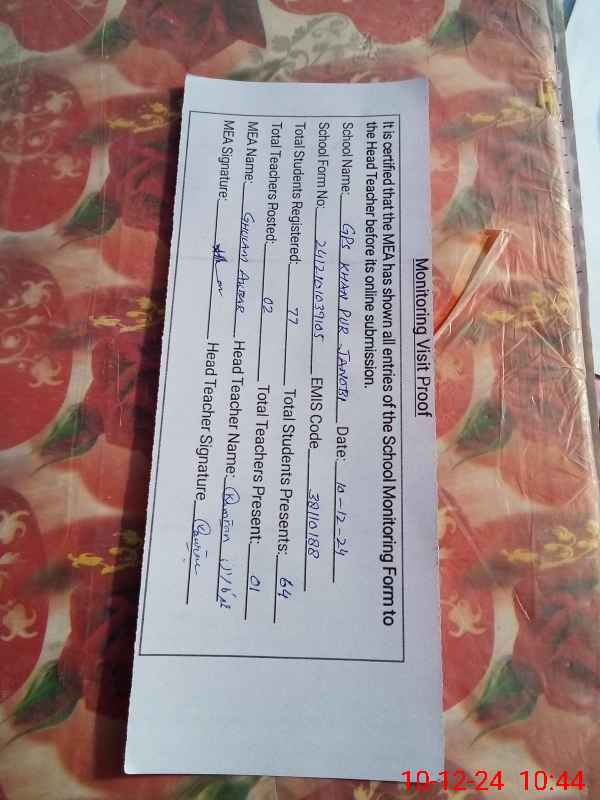 Monitoring Visit Proof
It is certified that the MEA has shown all entries of the School Monitoring Form to
the Head Teacher before its online submission.
School Name: GPS KHAN PUR JANOBI Date: 10-12-24
School Form No: 2412101039105 EMIS Code 38110188
Total Students Registered: 77 Total Students Presents: 64
Total Teachers Posted: 02 Total Teachers Present: 01
MEA Name: GHULAM Head Teacher Name:
MEA Signature: Head Teacher Signature
10-12-24 10:44